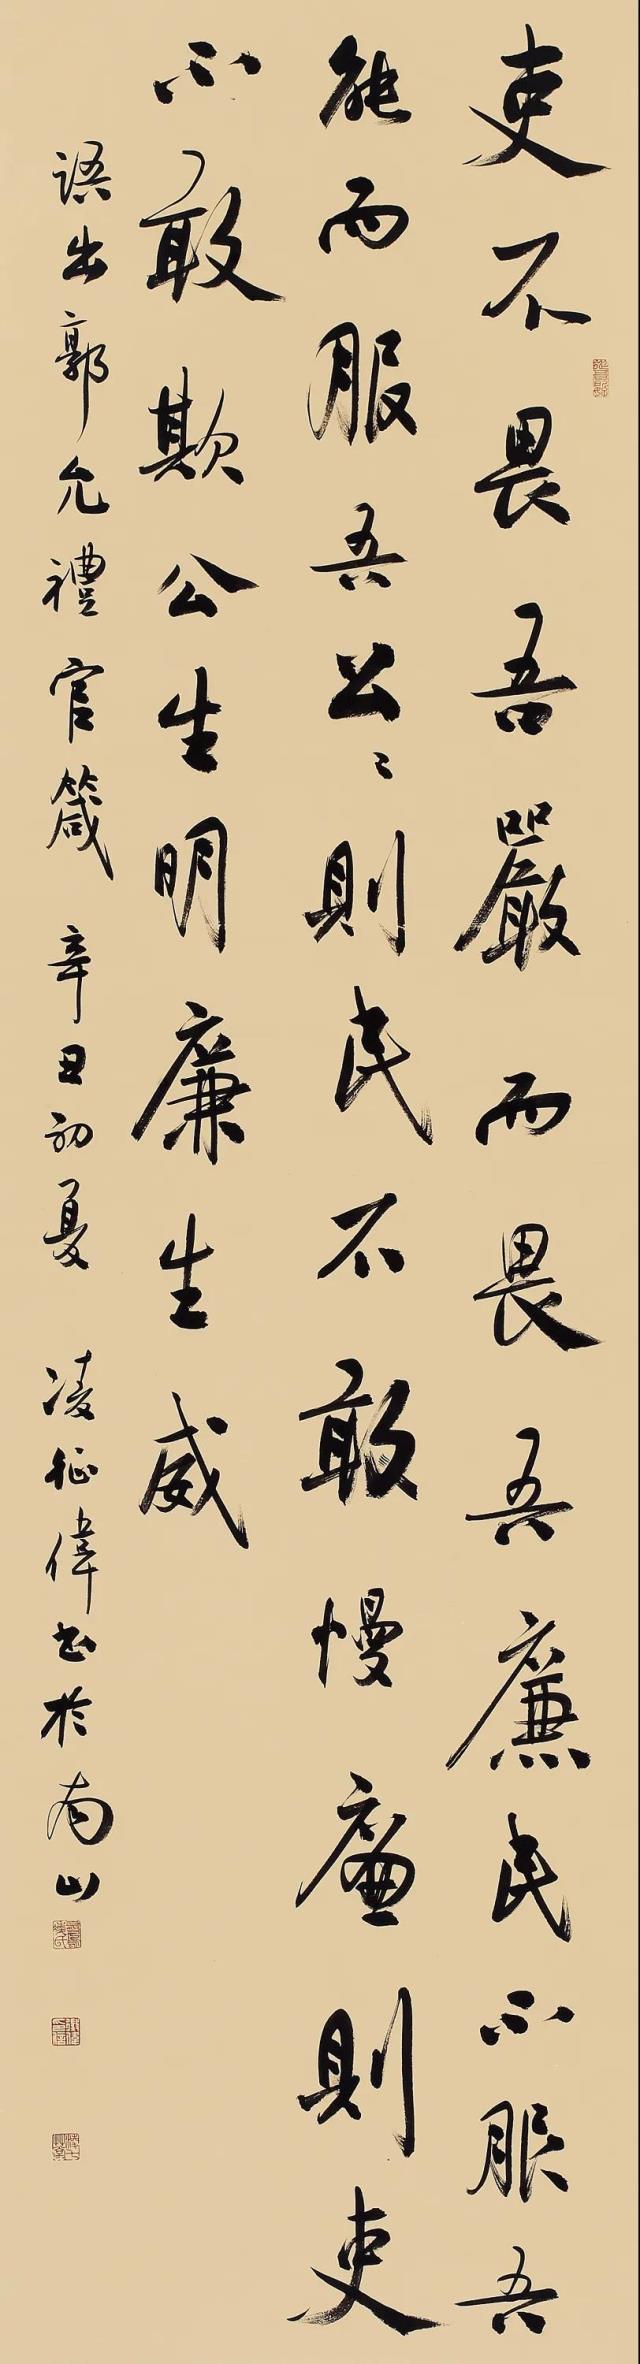 吏不畏吾嚴而畏吾廉民不服吾
能而服吾公公則民不敢慢廉則吏
不敢欺公生明廉生威
語出郭允禮官箴 辛丑初夏 凌征偉书於南山